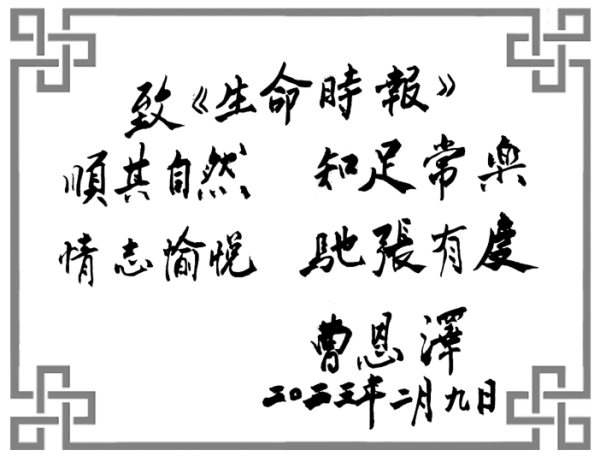 致《生命時報》
順其自然 知足常樂
情志愉悦 馳張有度
曹恩澤
二〇二三年二月九日